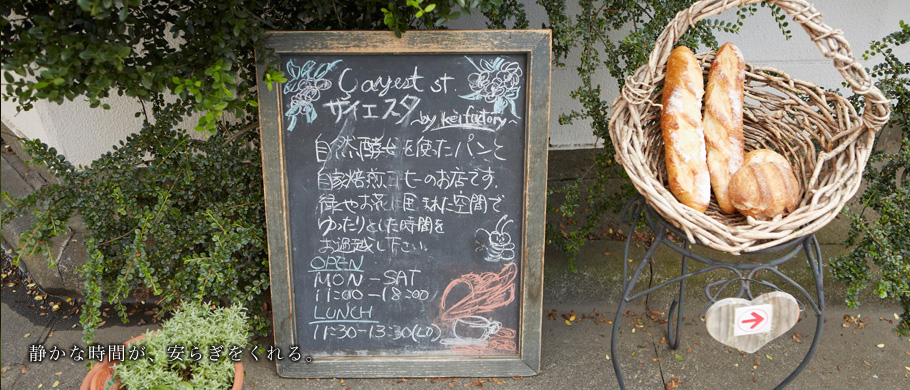 Cargest st.
ザイエスタ
~by keifactory~
自然酵母を使ったパンと
自家焙煎コーヒーのお店です。
緑やお花に囲まれた空間で
ゆったりとした時間を
お過越し下さい。
OPEN
MON-SAT
11:00-18:00
LUNCH
11:30-13:30(LO)
静かな時間が、安らぎをくれる。